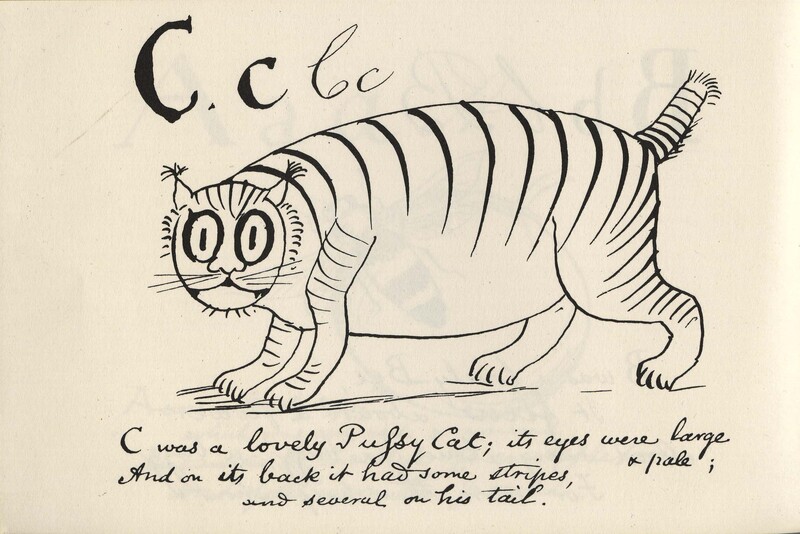 C. c C c
C was a lovely Pussy Cat; its eyes were large
& pale;
And on its back it had some stripes,
and several on his tail.